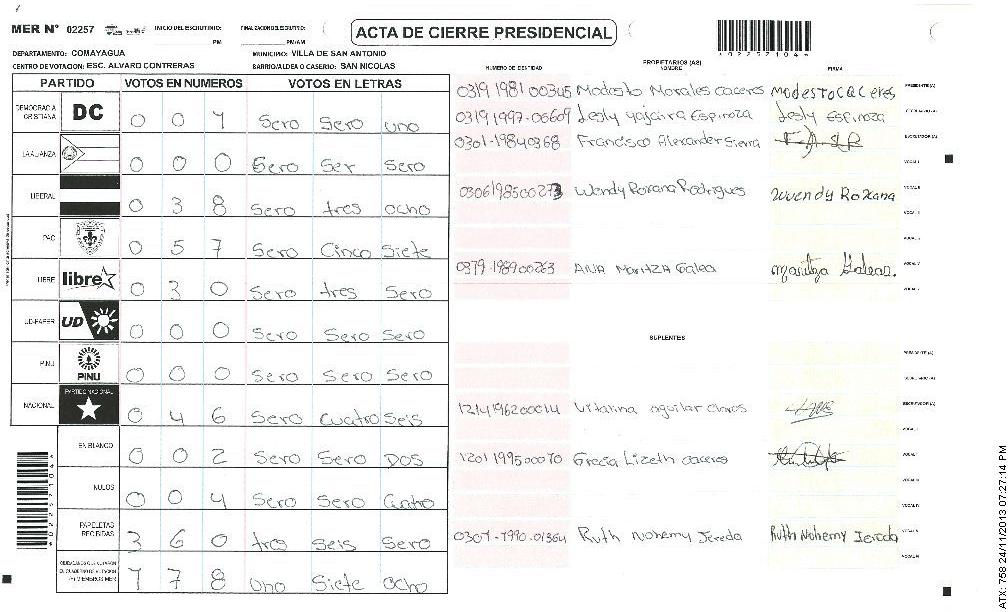 MER N° 02257
INICIO DEL ESCRUTINIO:
PM
FINALIZACION ESCRUTINIO:
PM/AM
ACTA DE CIERRE PRESIDENCIAL
*022571044*
DEPARTAMENTO: COMAYAGUA
MUNICIPIO: VILLA DE SAN ANTONIO
CENTRO DE VOTACION: ESC. ALVARO CONTRERAS
BARRIO/ALDEA O CASERIO: SAN NICOLAS
PARTIDO VOTOS EN NUMEROS VOTOS EN LETRAS
DEMOCRACIA CRISTIANA DC 0 0 1 Sero Sero uno
LA ALIANZA 0 0 0 Sero Ser Sero
LIBERAL 0 3 8 Sero tres ocho
PAC 0 5 7 Sero Cinco Siete
LIBRE libre 0 3 0 Sero tres Sero
UD-FAPER UD 0 0 0 Sero Sero Sero
PINU PINU 0 0 0 Sero Sero Sero
NACIONAL PARTIDO NACIONAL 0 4 6 Sero Cuatro Seis
EN BLANCO 0 0 2 Sero Sero DOS
NULOS 0 0 4 Sero Sero Cuatro
PAPELETAS RECIBIDAS 3 6 0 tres seis Sero
CIUDADANOS QUE VOTARON
(Y) MIEMBROS MER 1 7 8 uno Siete ocho
NUMERO DE IDENTIDAD
PROPIETARIOS (AS)
NOMBRE
FIRMA
0319 1981 00345 Modesto Morales caceres Modesto Caceres PRESIDENTE (A)
0319 1997-06609 Lesly yajaira Espinoza Lesly Espinoza
0301-19840368 Francisco Alexander Sierra ESCRUTADOR (A)
VOCAL I
0306198500273 Wendy Roxana Rodrigues Wuendy Roxana VOCAL II
0319-198900263 ANA Maritza Galea maritza Galeas. VOCAL V
SUPLENTES
PRESIDENTE (A)
SECRETARIO (A)
1214196200014 Vitalina aguilar ESCRUTADOR (A)
1201199500070 Grecia Lizeth caceres
0301-1990-01364 Ruth Nohemy Jereda Ruth Nohemy Jereda
ATX: 758 24/11/2013 07:27:14 PM